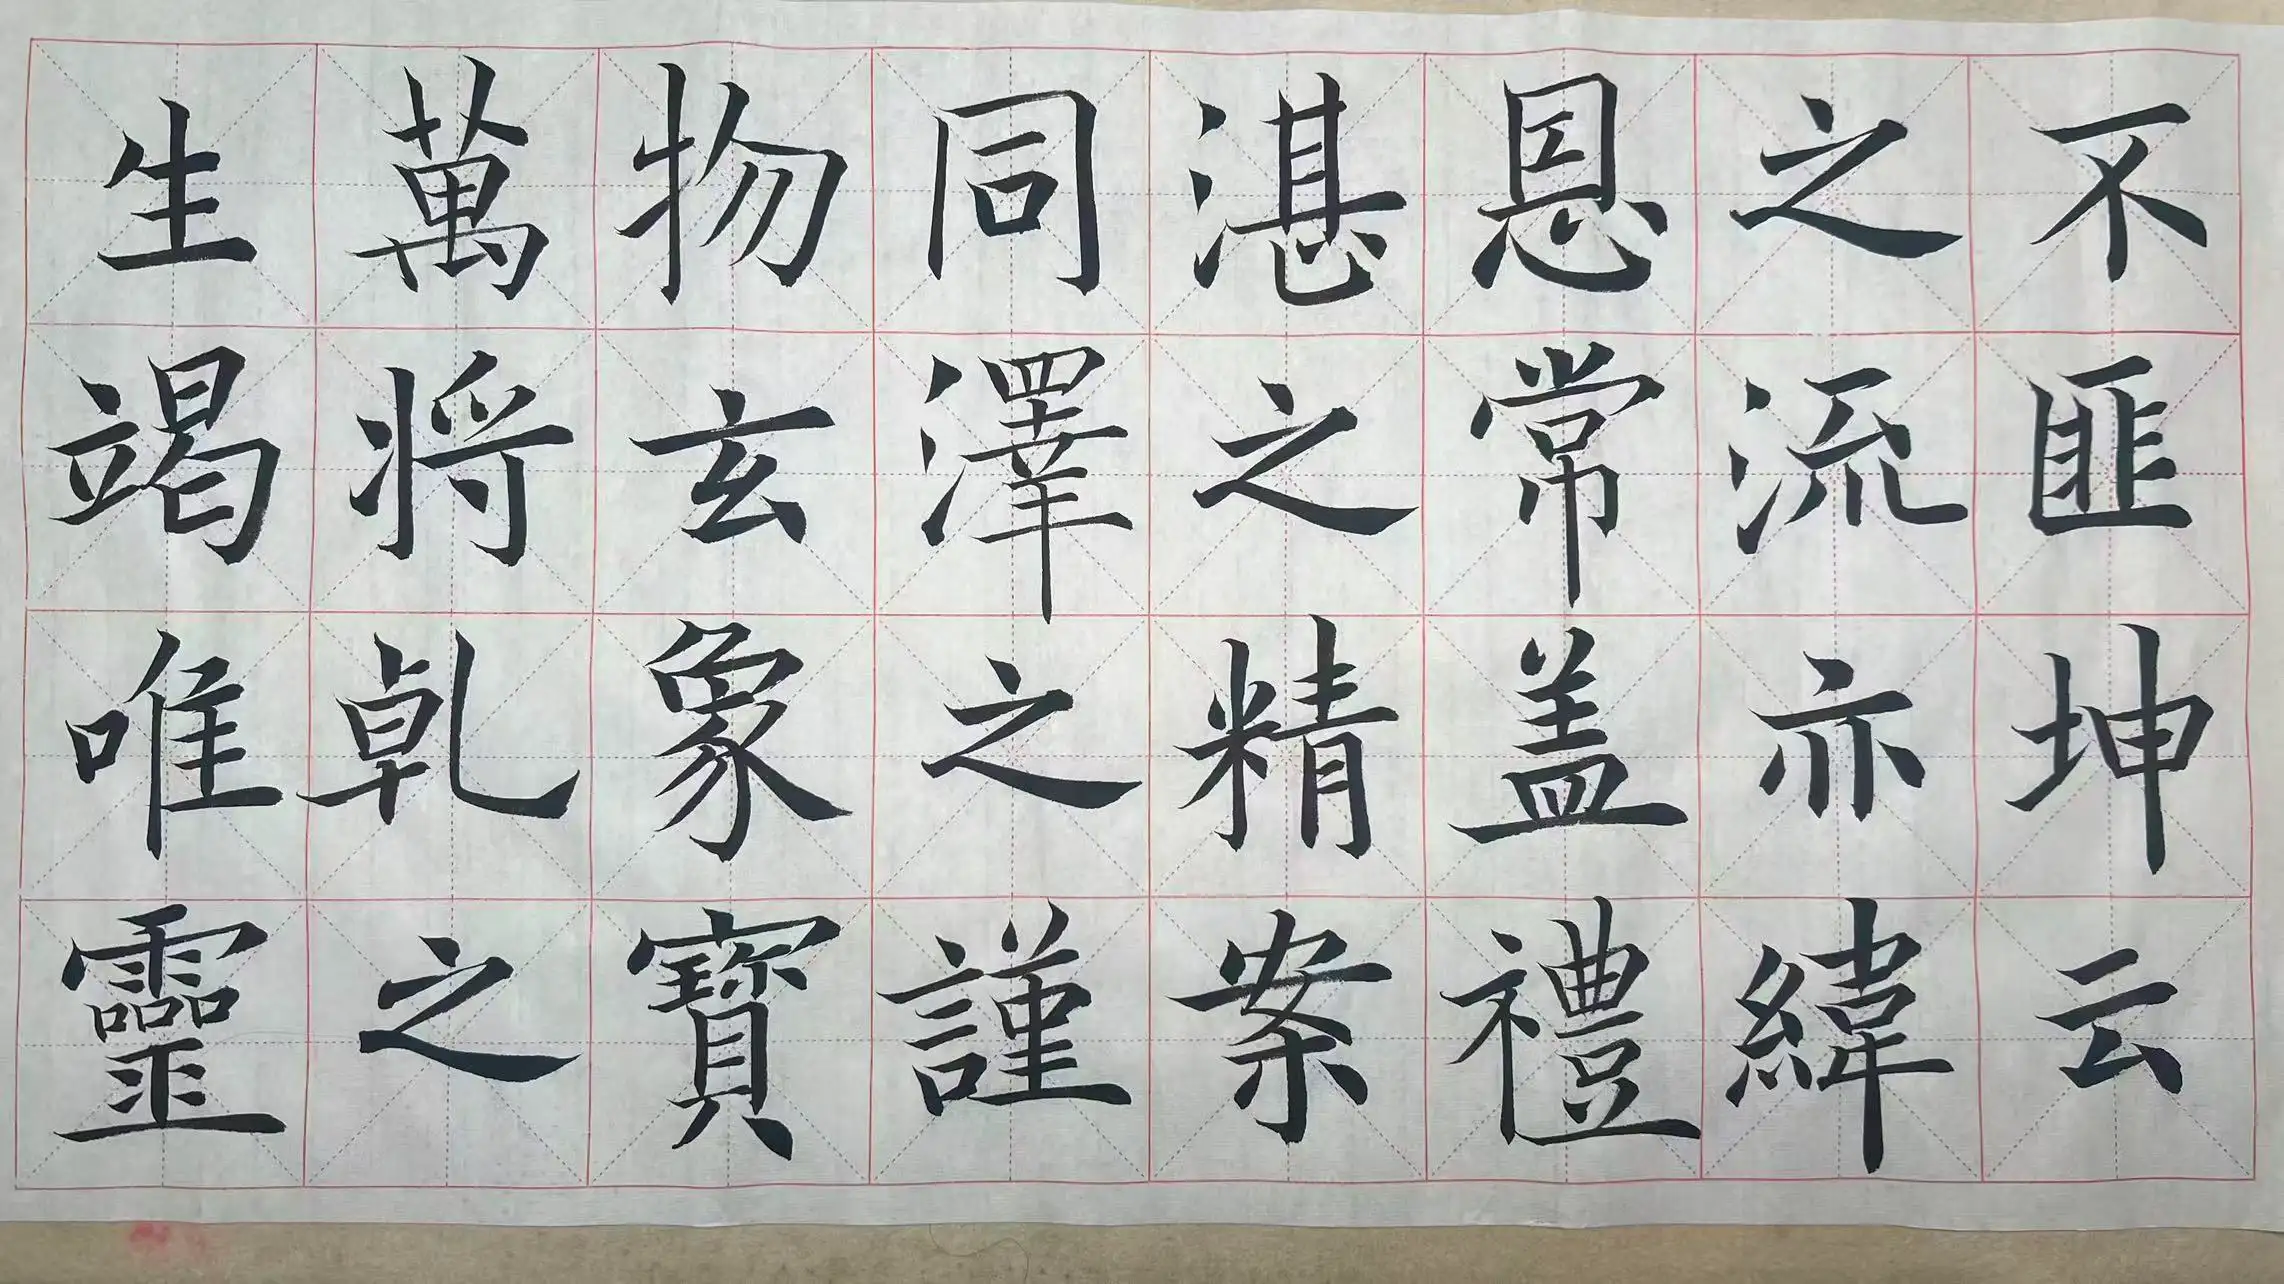 生萬物同湛恩之不
竭将玄澤之常流匪
唯乹象之精盖亦坤
靈之寶謹案禮緯云